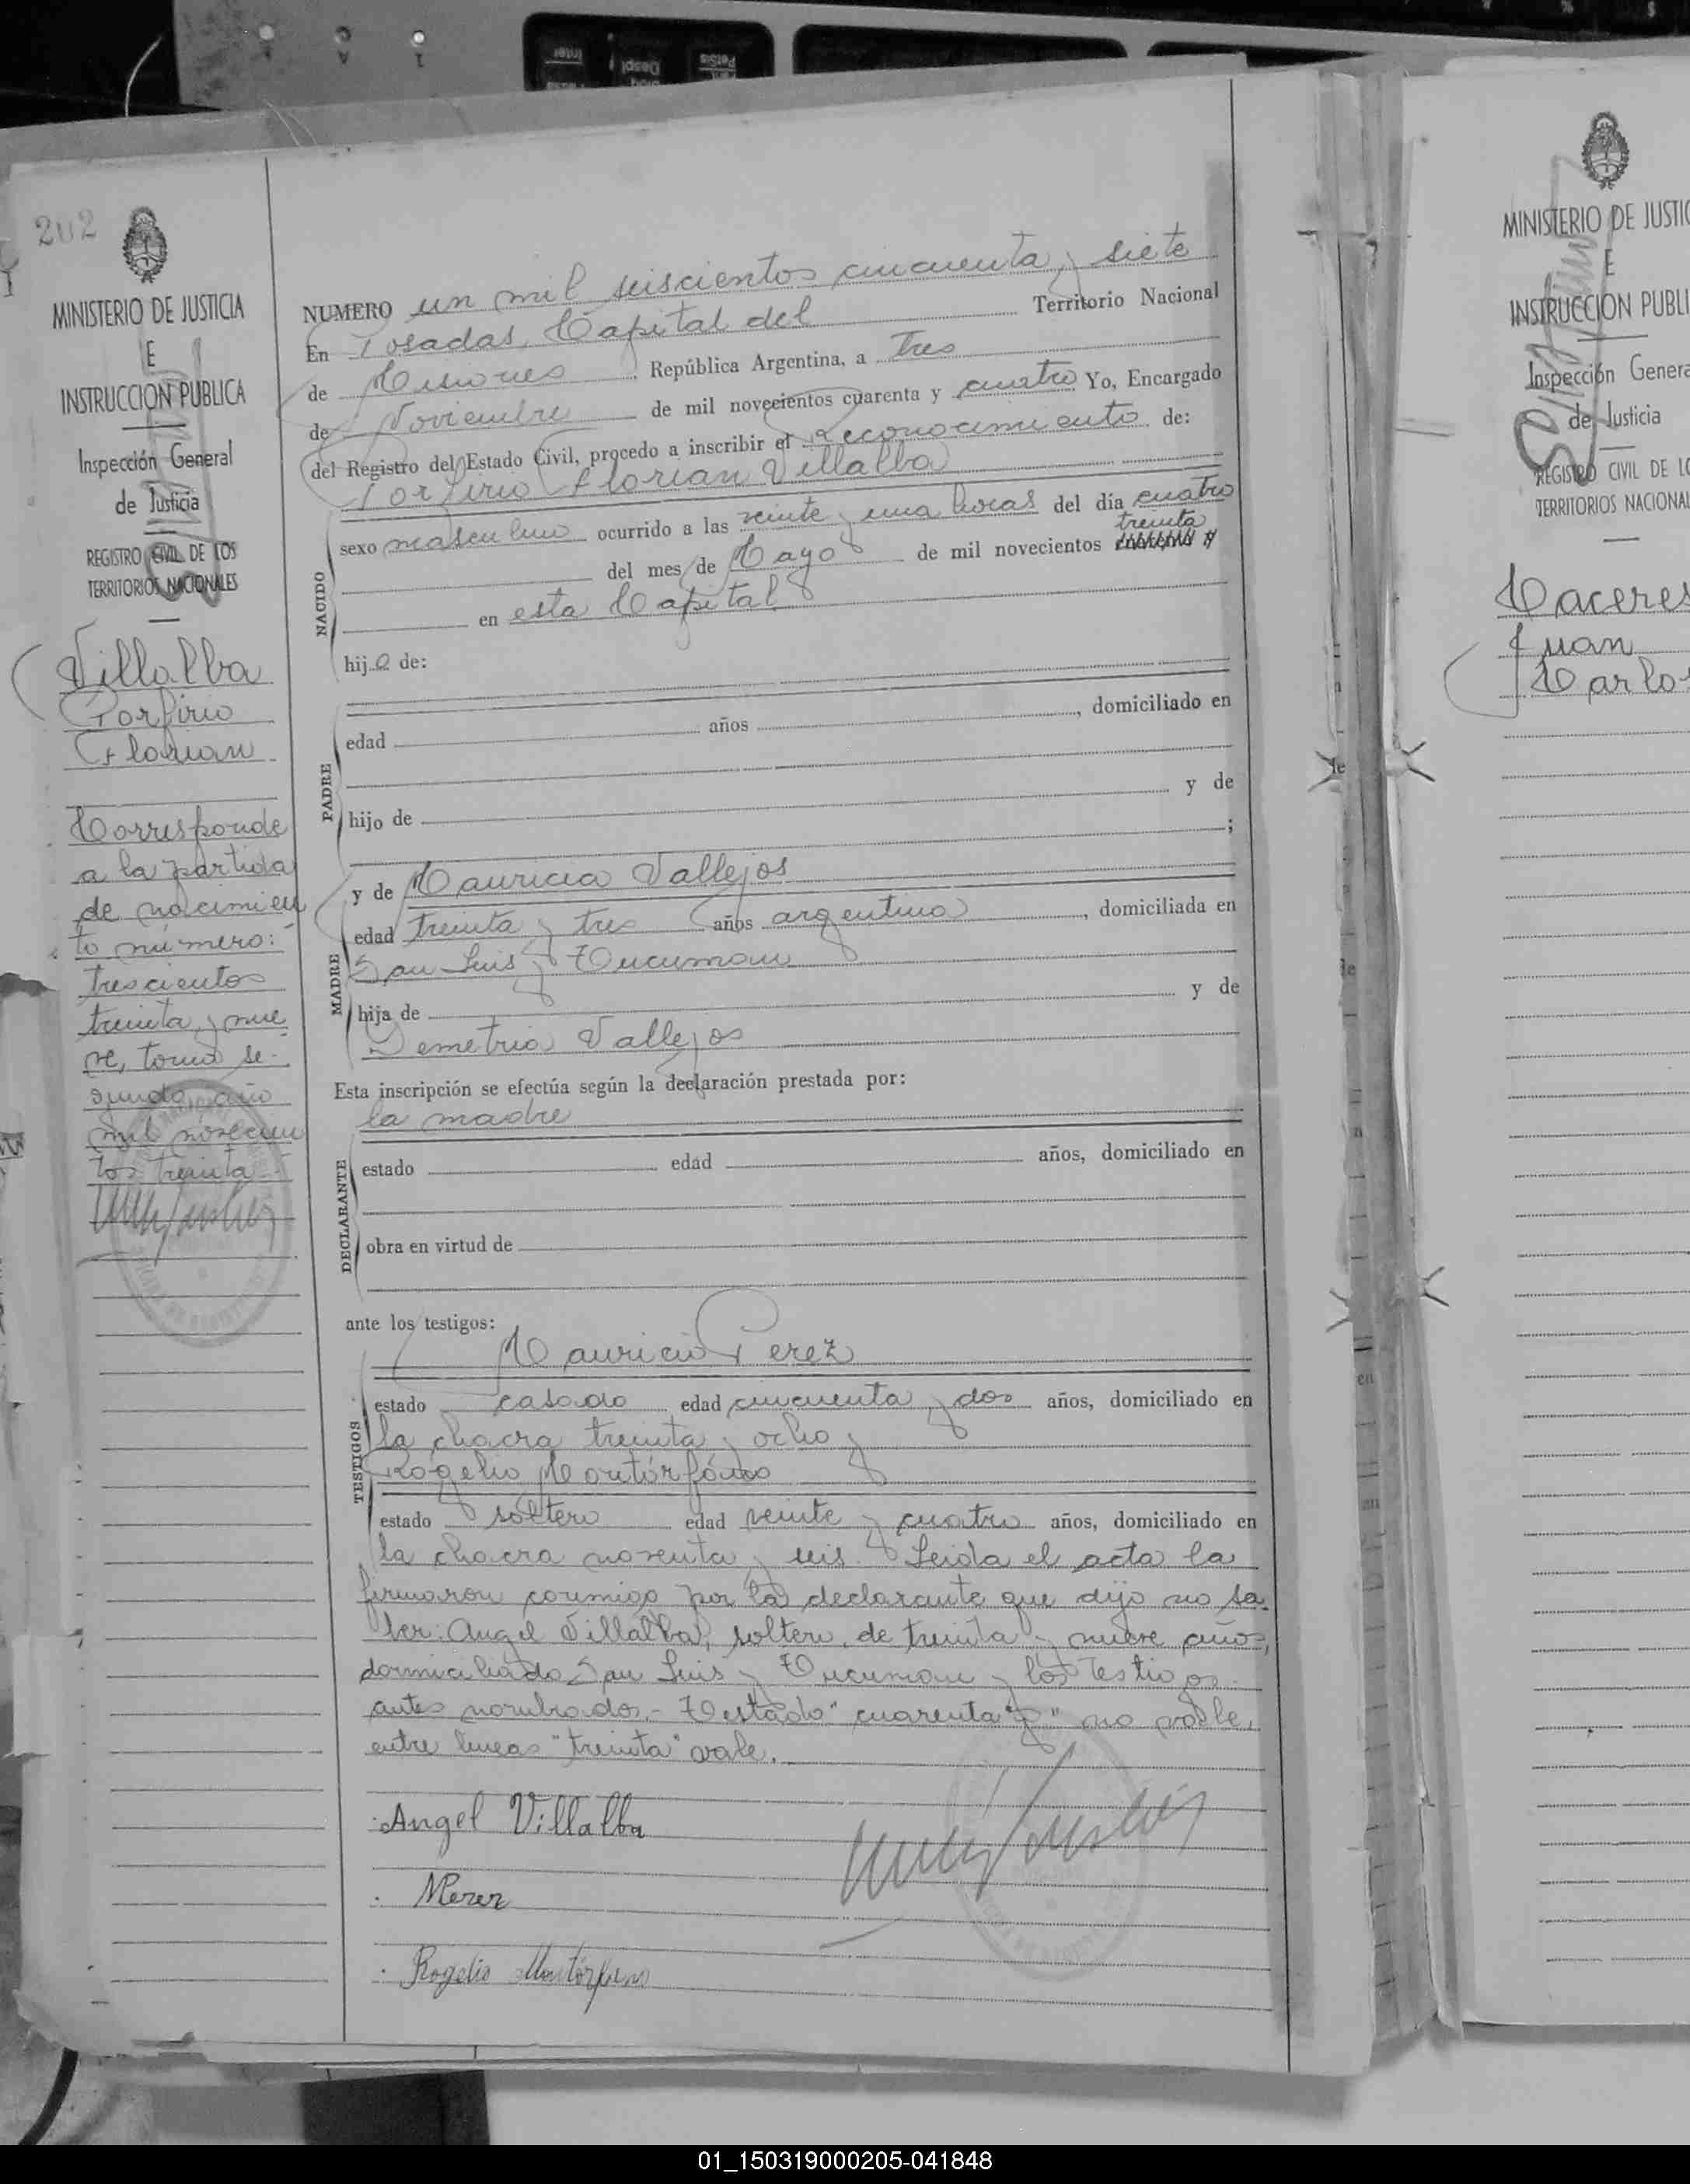 202
MINISTERIO DE JUSTICIA
E
INSTRUCCION PUBLICA
Inspección General
de Justicia
REGISTRO CIVIL DE LOS
TERRITORIOS NACIONALES
Villalba
Porfirio
Florian
Corresponde
a la partida
de nacimien
to número:
trescientos
treinta y nue
ve, tomo se-
gundo, año
mil novecien
tos treinta
NUMERO un mil seiscientos cincuenta y siete
En Posadas, Capital del Territorio Nacional
de Misiones República Argentina, a Tres
de Noviembre de mil novecientos cuarenta y cuatro Yo, Encargado
del Registro del Estado Civil, procedo a inscribir el Reconocimiento de:
Porfirio Florian Villalba
NACIDO
sexo masculino ocurrido a las veinte y una horas del día cuatro
treinta
del mes de Mayo de mil novecientos cuarenta y
en esta Capital
hijo de:
PADRE
edad años , domiciliado en
hijo de y de
;
MADRE
y de Mauricia Vallejos
edad treinta y tres años argentina , domiciliada en
San Luis y Tucuman
hija de y de
Demetria Vallejos
Esta inscripción se efectúa según la declaración prestada por:
la madre
DECLARANTE
estado edad años, domiciliado en
obra en virtud de
ante los testigos:
Mauricio Perez
TESTIGOS
estado casado edad cincuenta y dos años, domiciliado en
la chacra treinta y ocho y
Rogelio Montórfano
estado soltero edad veinte y cuatro años, domiciliado en
la chacra noventa y seis. Leida el acta la
firmaron conmigo por la declarante que dijo no sa-
ber: Angel Villalba, soltero, de treinta y nueve años,
domiciliado San Luis y Tucuman y los testigos
antes nombrados.- Testado "cuarenta y" no vale,
entre lineas "treinta" vale.
Angel Villalba
MPerez
Rogelio Montórfano
MINISTERIO DE JUSTIC
E
INSTRUCCION PUBLI
Inspección Genera
de Justicia
REGISTRO CIVIL DE LO
TERRITORIOS NACIONAL
Caceres
Juan
Carlos
01_150319000205-041848